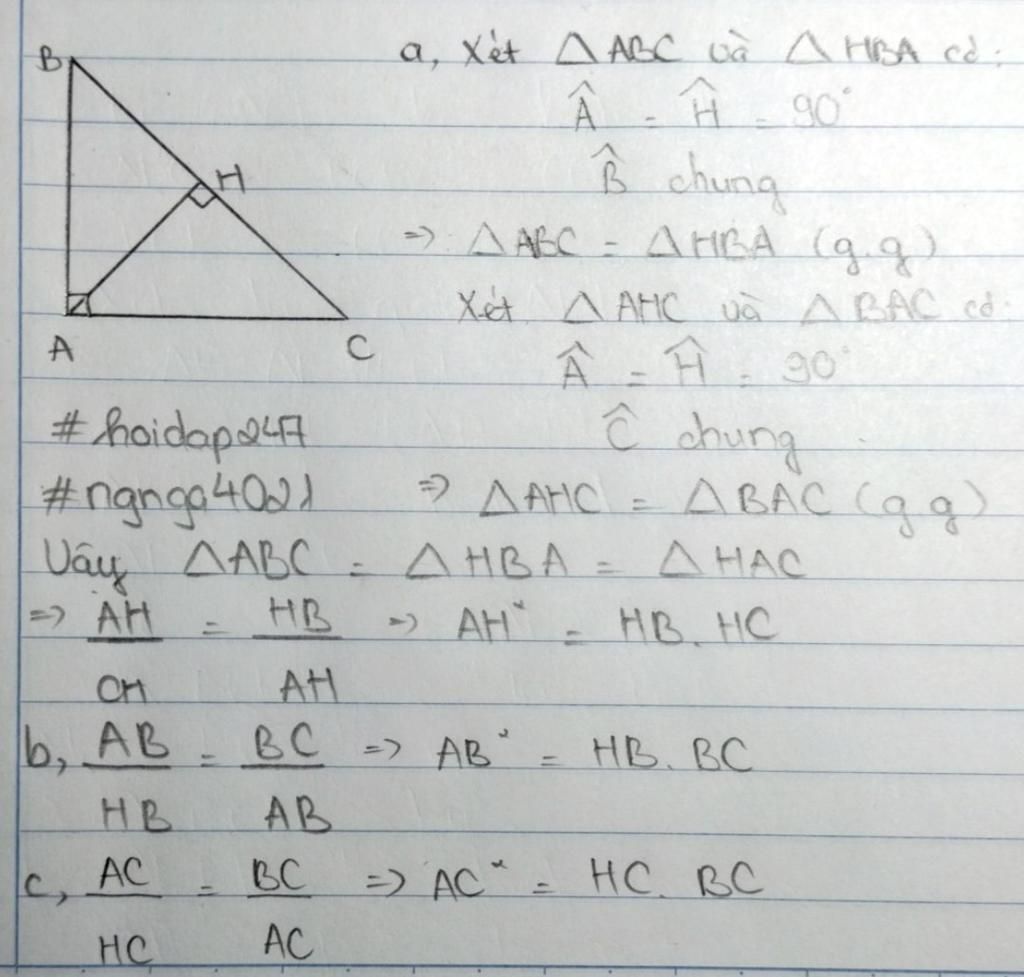 B
H
A
C
a, Xét △ABC và △HBA có:
Â = Ĥ = 90°
B̂ chung
=> △ABC = △HBA (g.g)
Xét △AHC và △BAC có:
Â = Ĥ = 90°
Ĉ chung
#hoidap247
#ngnga4021 => △AHC = △BAC (g.g)
Vây △ABC = △HBA = △HAC
=> AH/CH = HB/AH => AH² = HB.HC
b, AB/HB = BC/AB => AB² = HB.BC
c, AC/HC = BC/AC => AC² = HC.BC